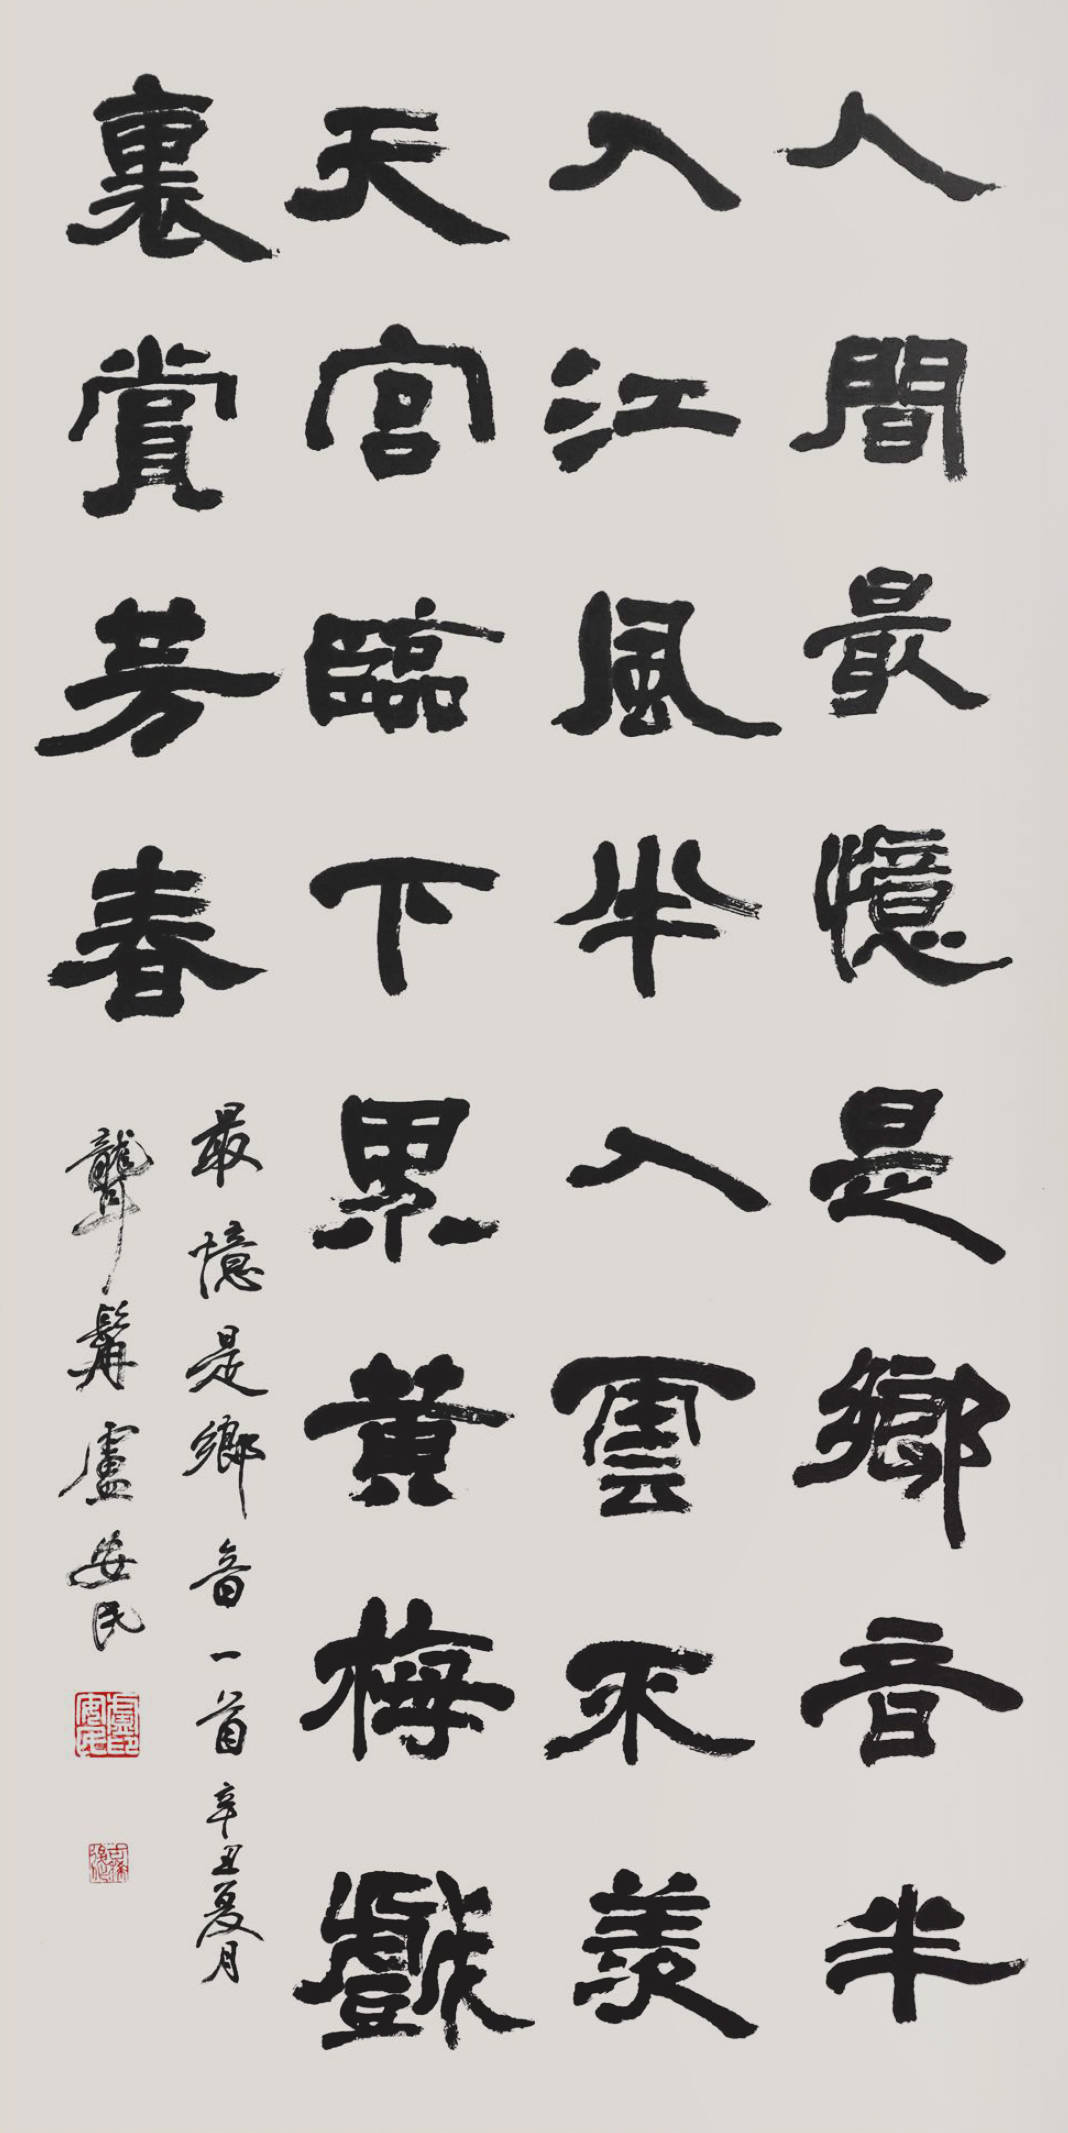 人間最憶是鄉音半
入江風半入雲不羨
天宮臨下界黃梅戲
裏賞芳春
最憶是鄉音一首辛丑夏月
龔髯盧安民
盧安民印